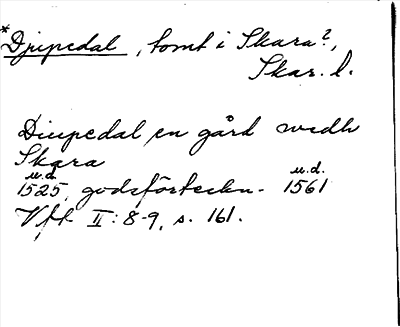 *Djupedal, tomt i Skara?,
Skar. l.
Diupedal en gård wedh
Skara
u.d. u.d.
1525, godsförteckn. 1561
Vft II: 8-9, s. 161.